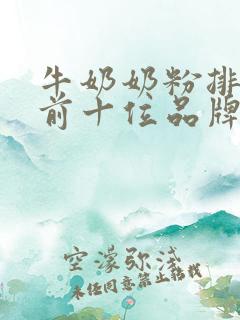 牛奶奶粉排
前十位品牌
空濛弥漫
未经同意禁止转载